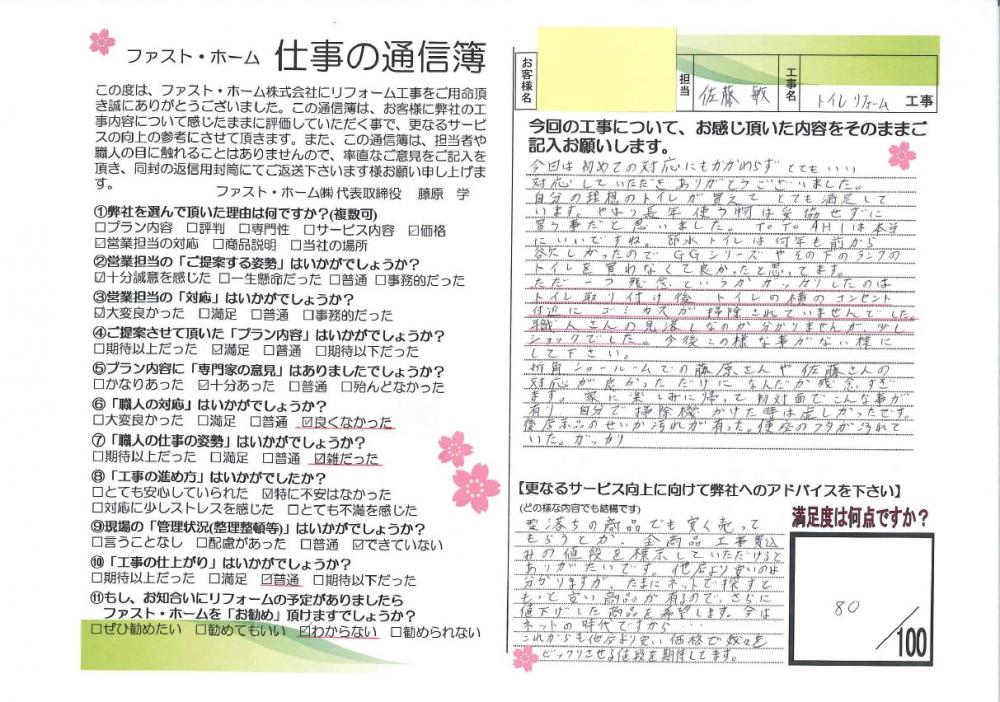 ファスト・ホーム 仕事の通信簿
この度は、ファスト・ホーム株式会社にリフォーム工事をご用命頂
き誠にありがとうございました。この通信簿は、お客様に弊社の工
事内容について感じたままに評価していただく事で、更なるサービ
スの向上の参考にさせて頂きます。また、この通信簿は、担当者や
職人の目に触れることはありませんので、率直なご意見をご記入を
頂き、同封の返信用封筒にてご返送下さいます様お願い申し上げま
す。
ファスト・ホーム㈱ 代表取締役 藤原 学
①弊社を選んで頂いた理由は何ですか?(複数可)
□プラン内容 □評判 □専門性 □サービス内容 ☑価格
☑営業担当の対応 □商品説明 □当社の場所
②営業担当の「ご提案する姿勢」はいかがでしょうか?
☑十分誠意を感じた □一生懸命だった □普通 □事務的だった
③営業担当の「対応」はいかがでしょうか?
☑大変良かった □満足 □普通 □事務的だった
④ご提案させて頂いた「プラン内容」はいかがでしょうか?
□期待以上だった ☑満足 □普通 □期待以下だった
⑤プラン内容に「専門家の意見」はありましたでしょうか?
□かなりあった ☑十分あった □普通 □殆んどなかった
⑥「職人の対応」はいかがでしょうか?
□大変良かった □満足 □普通 ☑良くなかった
⑦「職人の仕事の姿勢」はいかがでしょうか?
□大変良かった □満足 □普通 ☑雑だった
⑧「工事の進め方」はいかがでしたか?
□とても安心していられた ☑特に不安はなかった
□対応に少しストレスを感じた □とても不満を感じた
⑨現場の「管理状況(整理整頓等)」はいかがでしょうか?
□言うことなし □配慮があった □普通 ☑できていない
⑩「工事の仕上がり」はいかがでしょうか?
□期待以上だった □満足 ☑普通 □期待以下だった
⑪もし、お知合いにリフォームの予定がありましたら
ファスト・ホームを「お勧め」頂けますでしょうか?
□ぜひ勧めたい □勧めてもいい ☑わからない □勧められない
お客様名
担当 佐藤 敏
工事名 トイレリフォーム 工事
今回の工事について、お感じ頂いた内容をそのままご
記入お願いします。
今回は初めての対応にもかかわらず とてもいい
対応していただき ありがとうございました。
自分の理想のトイレが買えて とても満足して
います。やはり長年使う物は妥協せずに
買う事だと思いました。TOTO AH1は本当
にいいですね。節水トイレは何年も前から
欲しかったので GGシリーズやその下のランクの
トイレを買わなくて良かったと思ってます。
ただ一つ残念というかガッカリしたのは
トイレ取り付け後 トイレの横のコンセント
付近にゴミカスが掃除されていませんでした。
職人さんの見落しなのか分かりませんが 少し
ショックでした。今後この様な事がない様に
して下さい。
折角ショールームでの藤原さんや佐藤さんの
対応が良かっただけに なんだか残念すぎ
ます。家に楽しみに帰って初対面でこんな事が
有り 自分で掃除機かけた時は虚しかったです。
展示品のせいか汚れが有った。便座のフタが汚れて
いた。ガッカリ
【更なるサービス向上に向けて弊社へのアドバイスを下さい】
(どの様な内容でも結構です)
型落ちの商品でも安く売って
もらうとか、全商品工事費込
みの値段を標示していただけると
ありがたいです。他店より安いのは
分かりますが、たまにネットで探すと
もっと安い商品が有るので、さらに
値下げした商品を希望します。今は
ネットの時代ですから…
これからも他店より安い価格で数々を
ビックリさせる値段を期待してます。
満足度は何点ですか?
80
/100